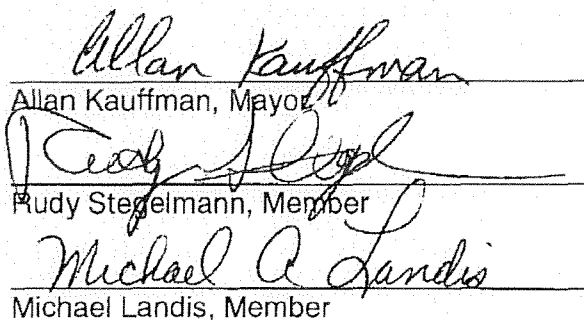 Allan Kauffman
Allan Kauffman, Mayor
Rudy
Rudy Stegelmann, Member
Michael A Landis
Michael Landis, Member